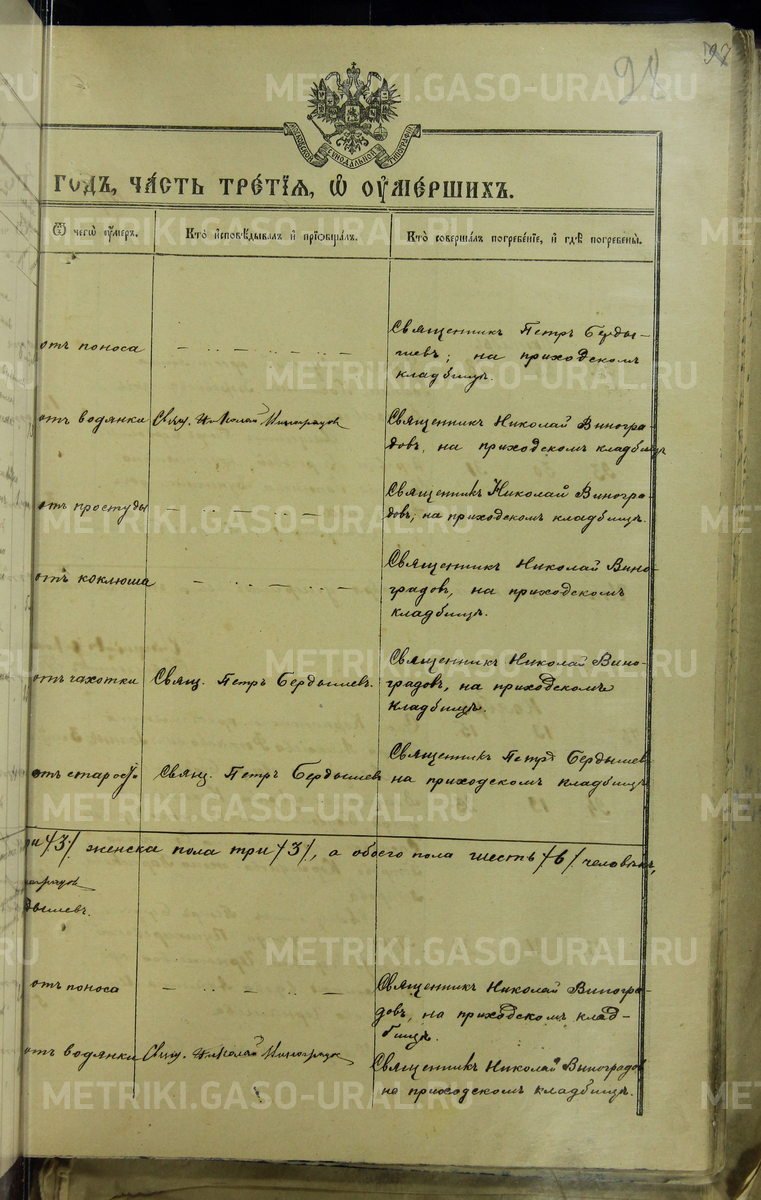 98
ГОДЪ, ЧАСТЬ ТРЕТІЯ, Ѿ ОУМЕРШИХЪ.
Ѿ чегѡ оумеръ.
Кто исповѣдывалъ и пріобщалъ.
Кто совершалъ погребеніе, и гдѣ погребены.
отъ поноса
Священникъ Петръ Берды-
шевъ; на приходскомъ
кладбищѣ.
отъ водянки
Свящ. Николай Виноградов
Священникъ Николай Виногра-
довъ, на приходскомъ кладбищѣ
отъ простуды
Священникъ Николай Виногра-
довъ, на приходскомъ кладбищѣ.
отъ коклюша
Священникъ Николай Вино-
градовъ, на приходскомъ
кладбищѣ.
отъ чахотки
Свящ. Петръ Бердышевъ.
Священникъ Николай Вино-
градовъ, на приходскомъ
кладбищѣ.
отъ старости
Свящ. Петръ Бердышевъ
Священникъ Петръ Бердышевъ
на приходскомъ кладбищѣ
ри /3/ женска пола три /3/, а обоего пола шесть /6/ человѣкъ,
дышевъ.
отъ поноса
Священникъ Николай Виногра-
довъ, на приходскомъ клад-
бищѣ.
отъ водянки
Свящ. Николай Виноградов
Священникъ Николай Виноградовъ
на приходскомъ кладбищѣ.
METRIKI.GASO-URAL.RU